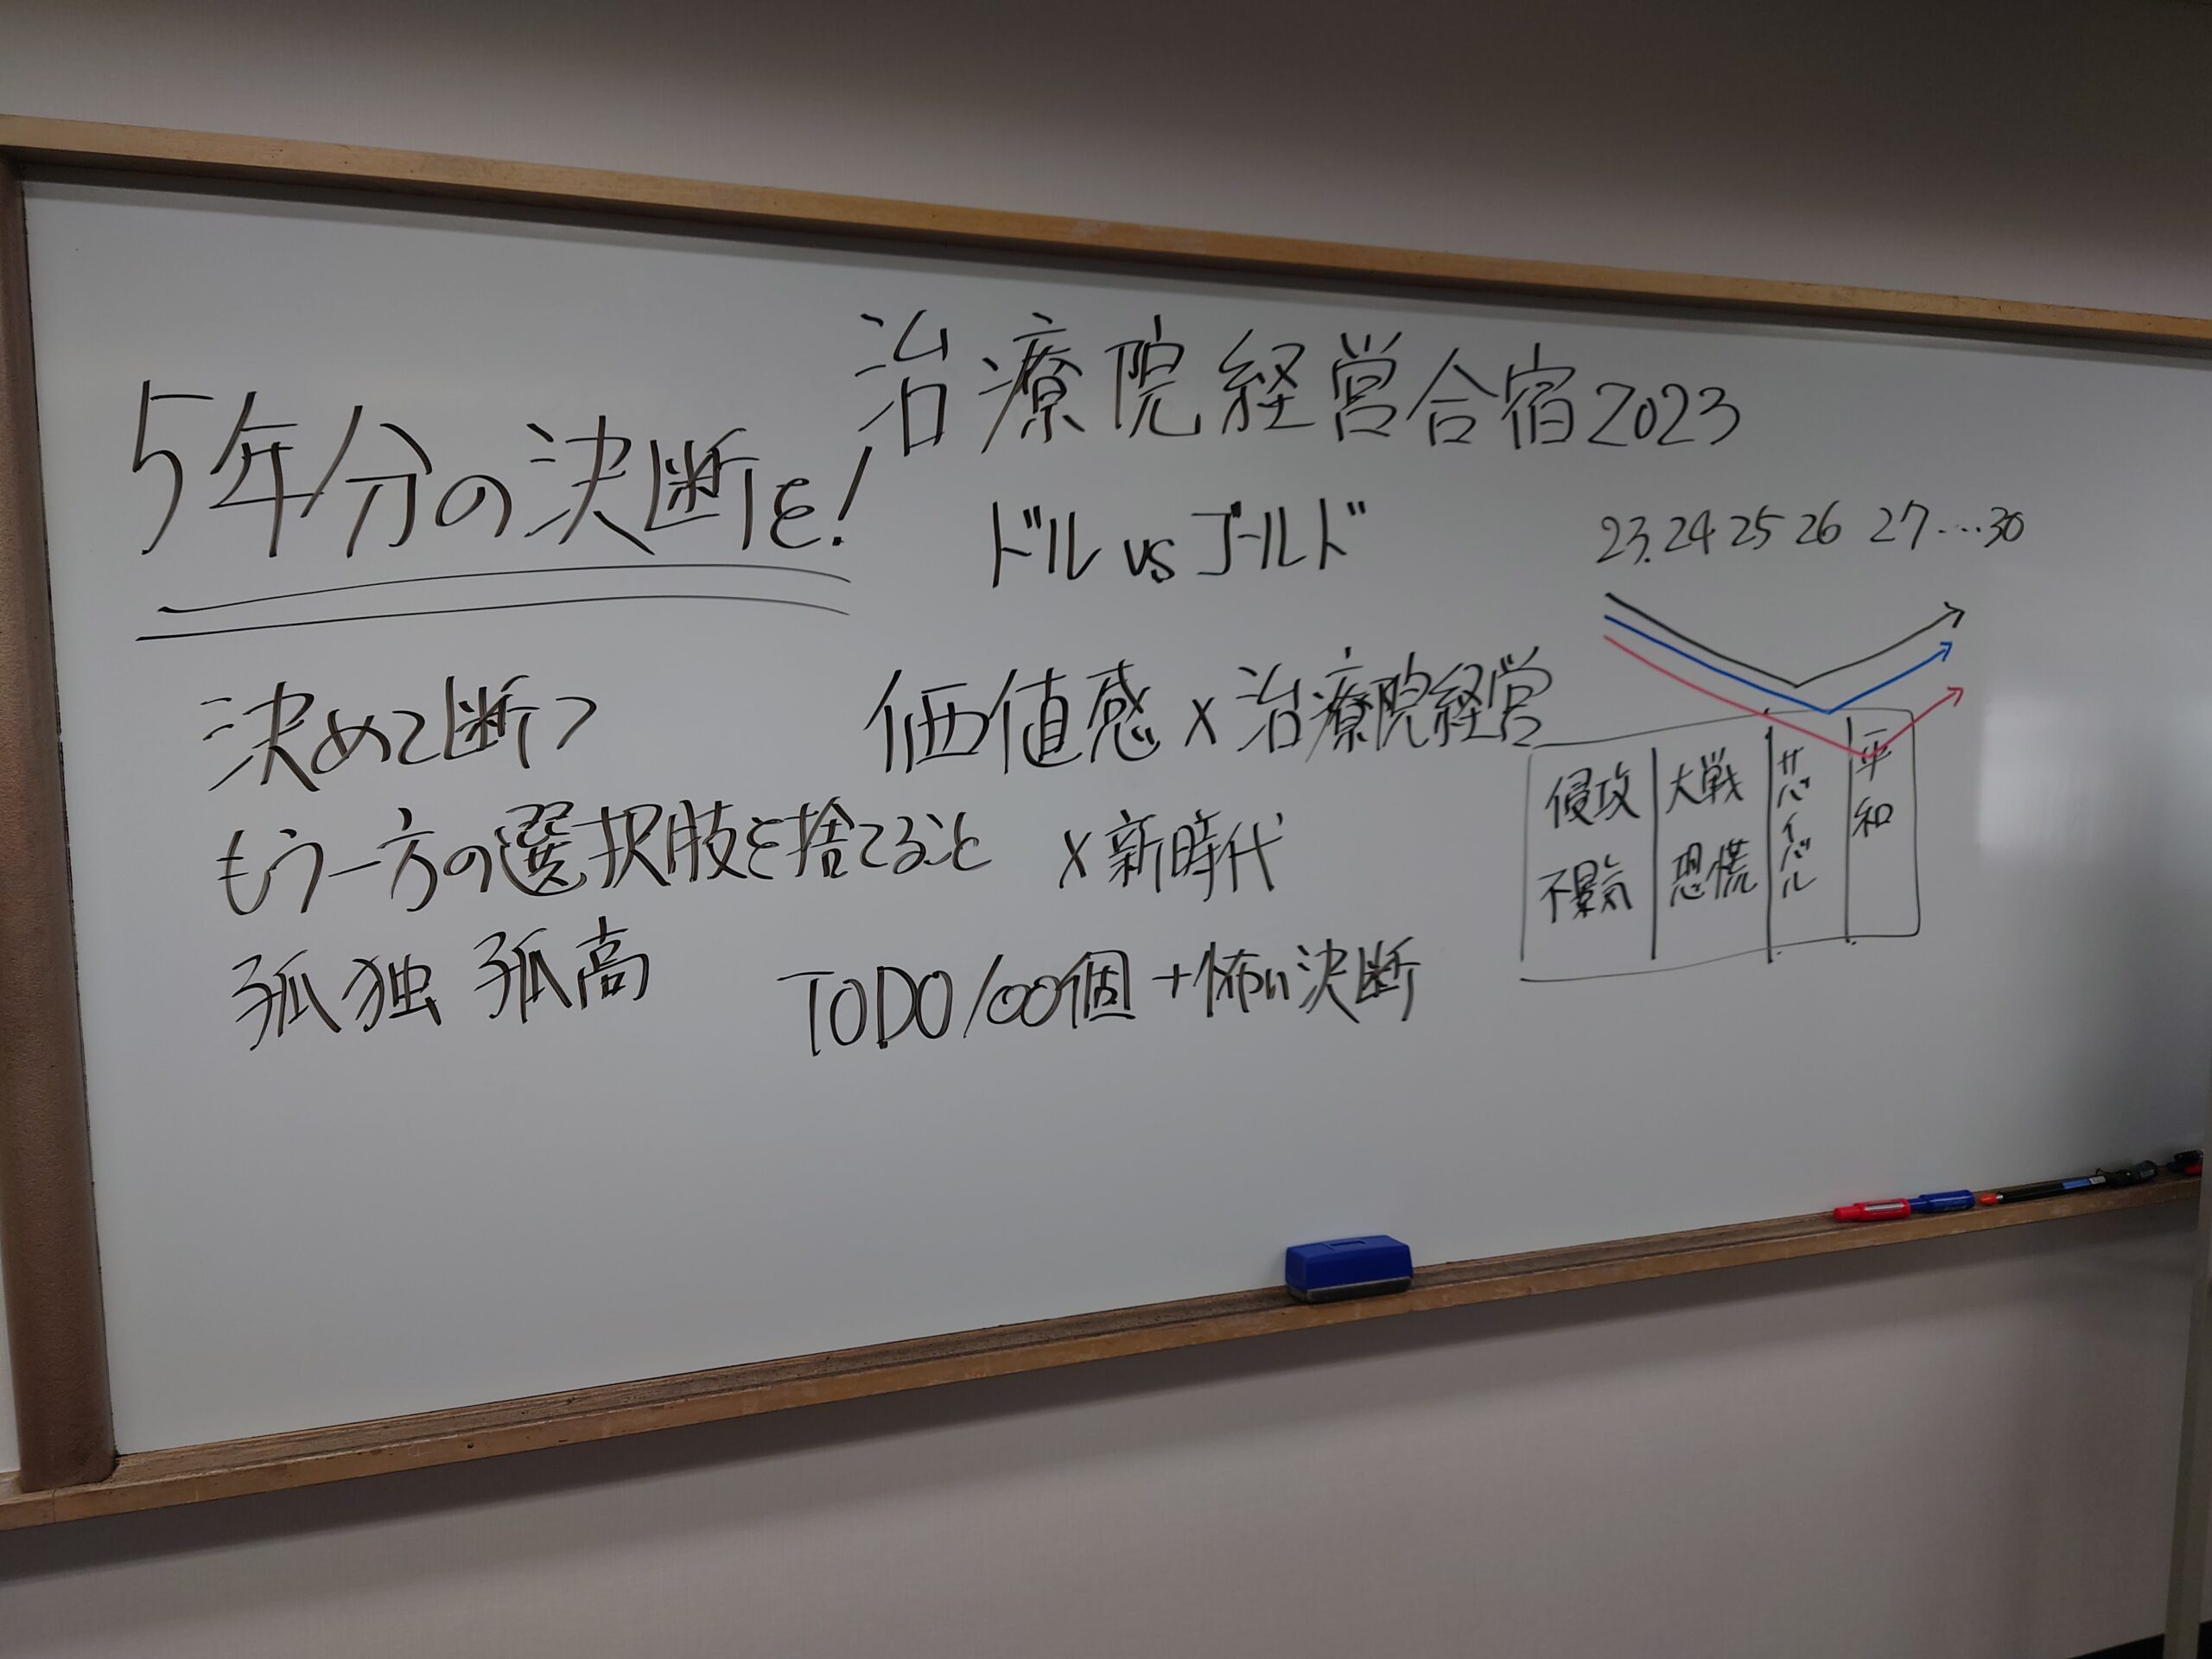 治療院経営合宿2023
5年分の決断を!
ドル vs ゴールド
23.24 25 26 27…30
決めて断つ
価値感×治療院経営
もう一方の選択肢を捨てること
×新時代
孤独 孤高
TODO 100個 +怖い決断
侵攻 大戦 サバイバル 平和
不景気 恐慌